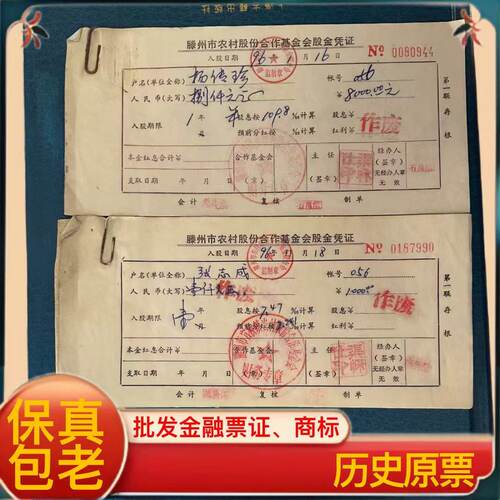 滕州市农村股份合作基金会股金凭证
入股日期 96年1月16日 № 0080944
户名(单位全称) 杨传珍 帐号 056
人民币(大写) 捌仟元正 ¥ 8000.00元
入股期限 1年 股息按10.98‰计算 股息 作废
预期分红按 ‰计算 红利
本金红息合计¥ 合作基金会 主任 经办人
(签章)
支取日期 年 月 日 (章) (签章) 无经办人章
无效
会计 复核 制单
第一联存根
滕州市农村股份合作基金会股金凭证
入股日期 96年11月18日 № 0187990
户名(单位全称) 张志成 帐号 056
人民币(大写) 壹仟 作废 ¥ 1000
入股期限 股息按7.47‰计算 股息 作废
预期分红按 ‰计算 红利
本金红息合计¥ 合作基金会 主任 经办人
(签章)
支取日期 年 月 日 (章) (签章) 无经办人章
无效
会计 复核 制单
第一联存根
保真
包老
批发金融票证、商标
历史原票